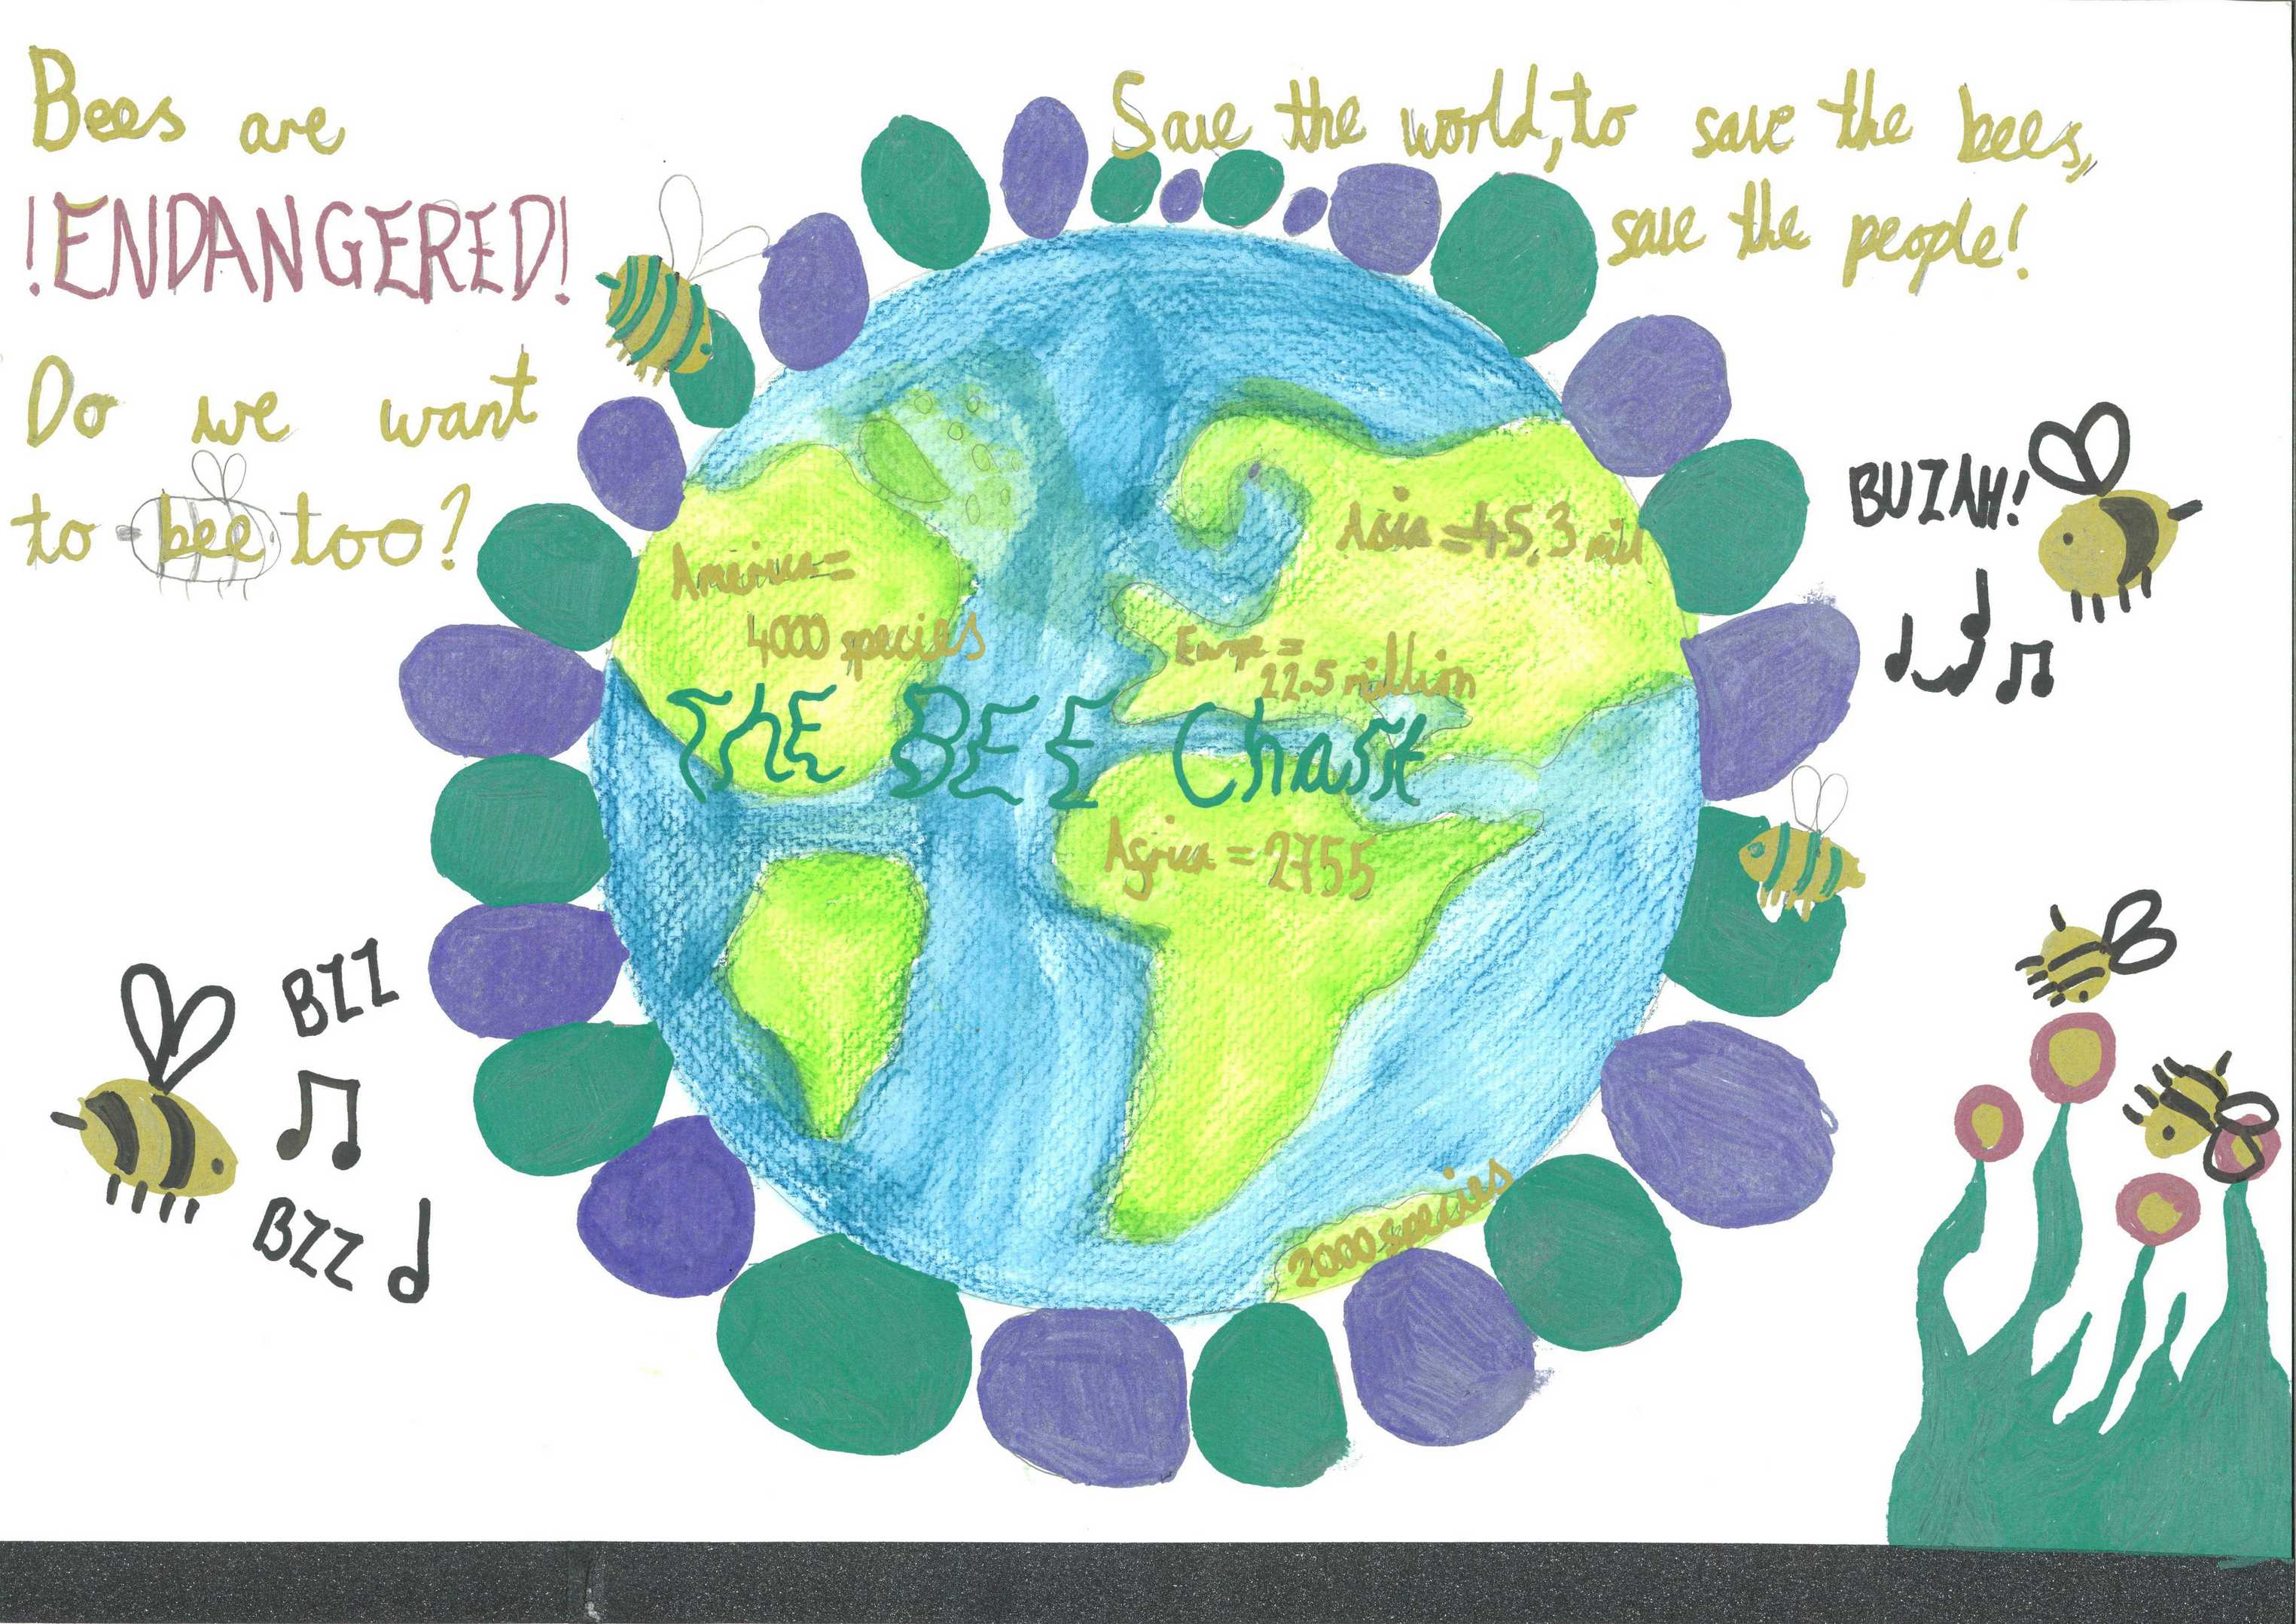 Bees are
!ENDANGERED!
Do we want
to bee too?
Save the world, to save the bees,
save the people!
BUZAH!
America =
4000 species
Asia = 45.3 mil
Europe =
22.5 million
THE BEE Chart
Africa = 2755
2000 species
BZZ
BZZ